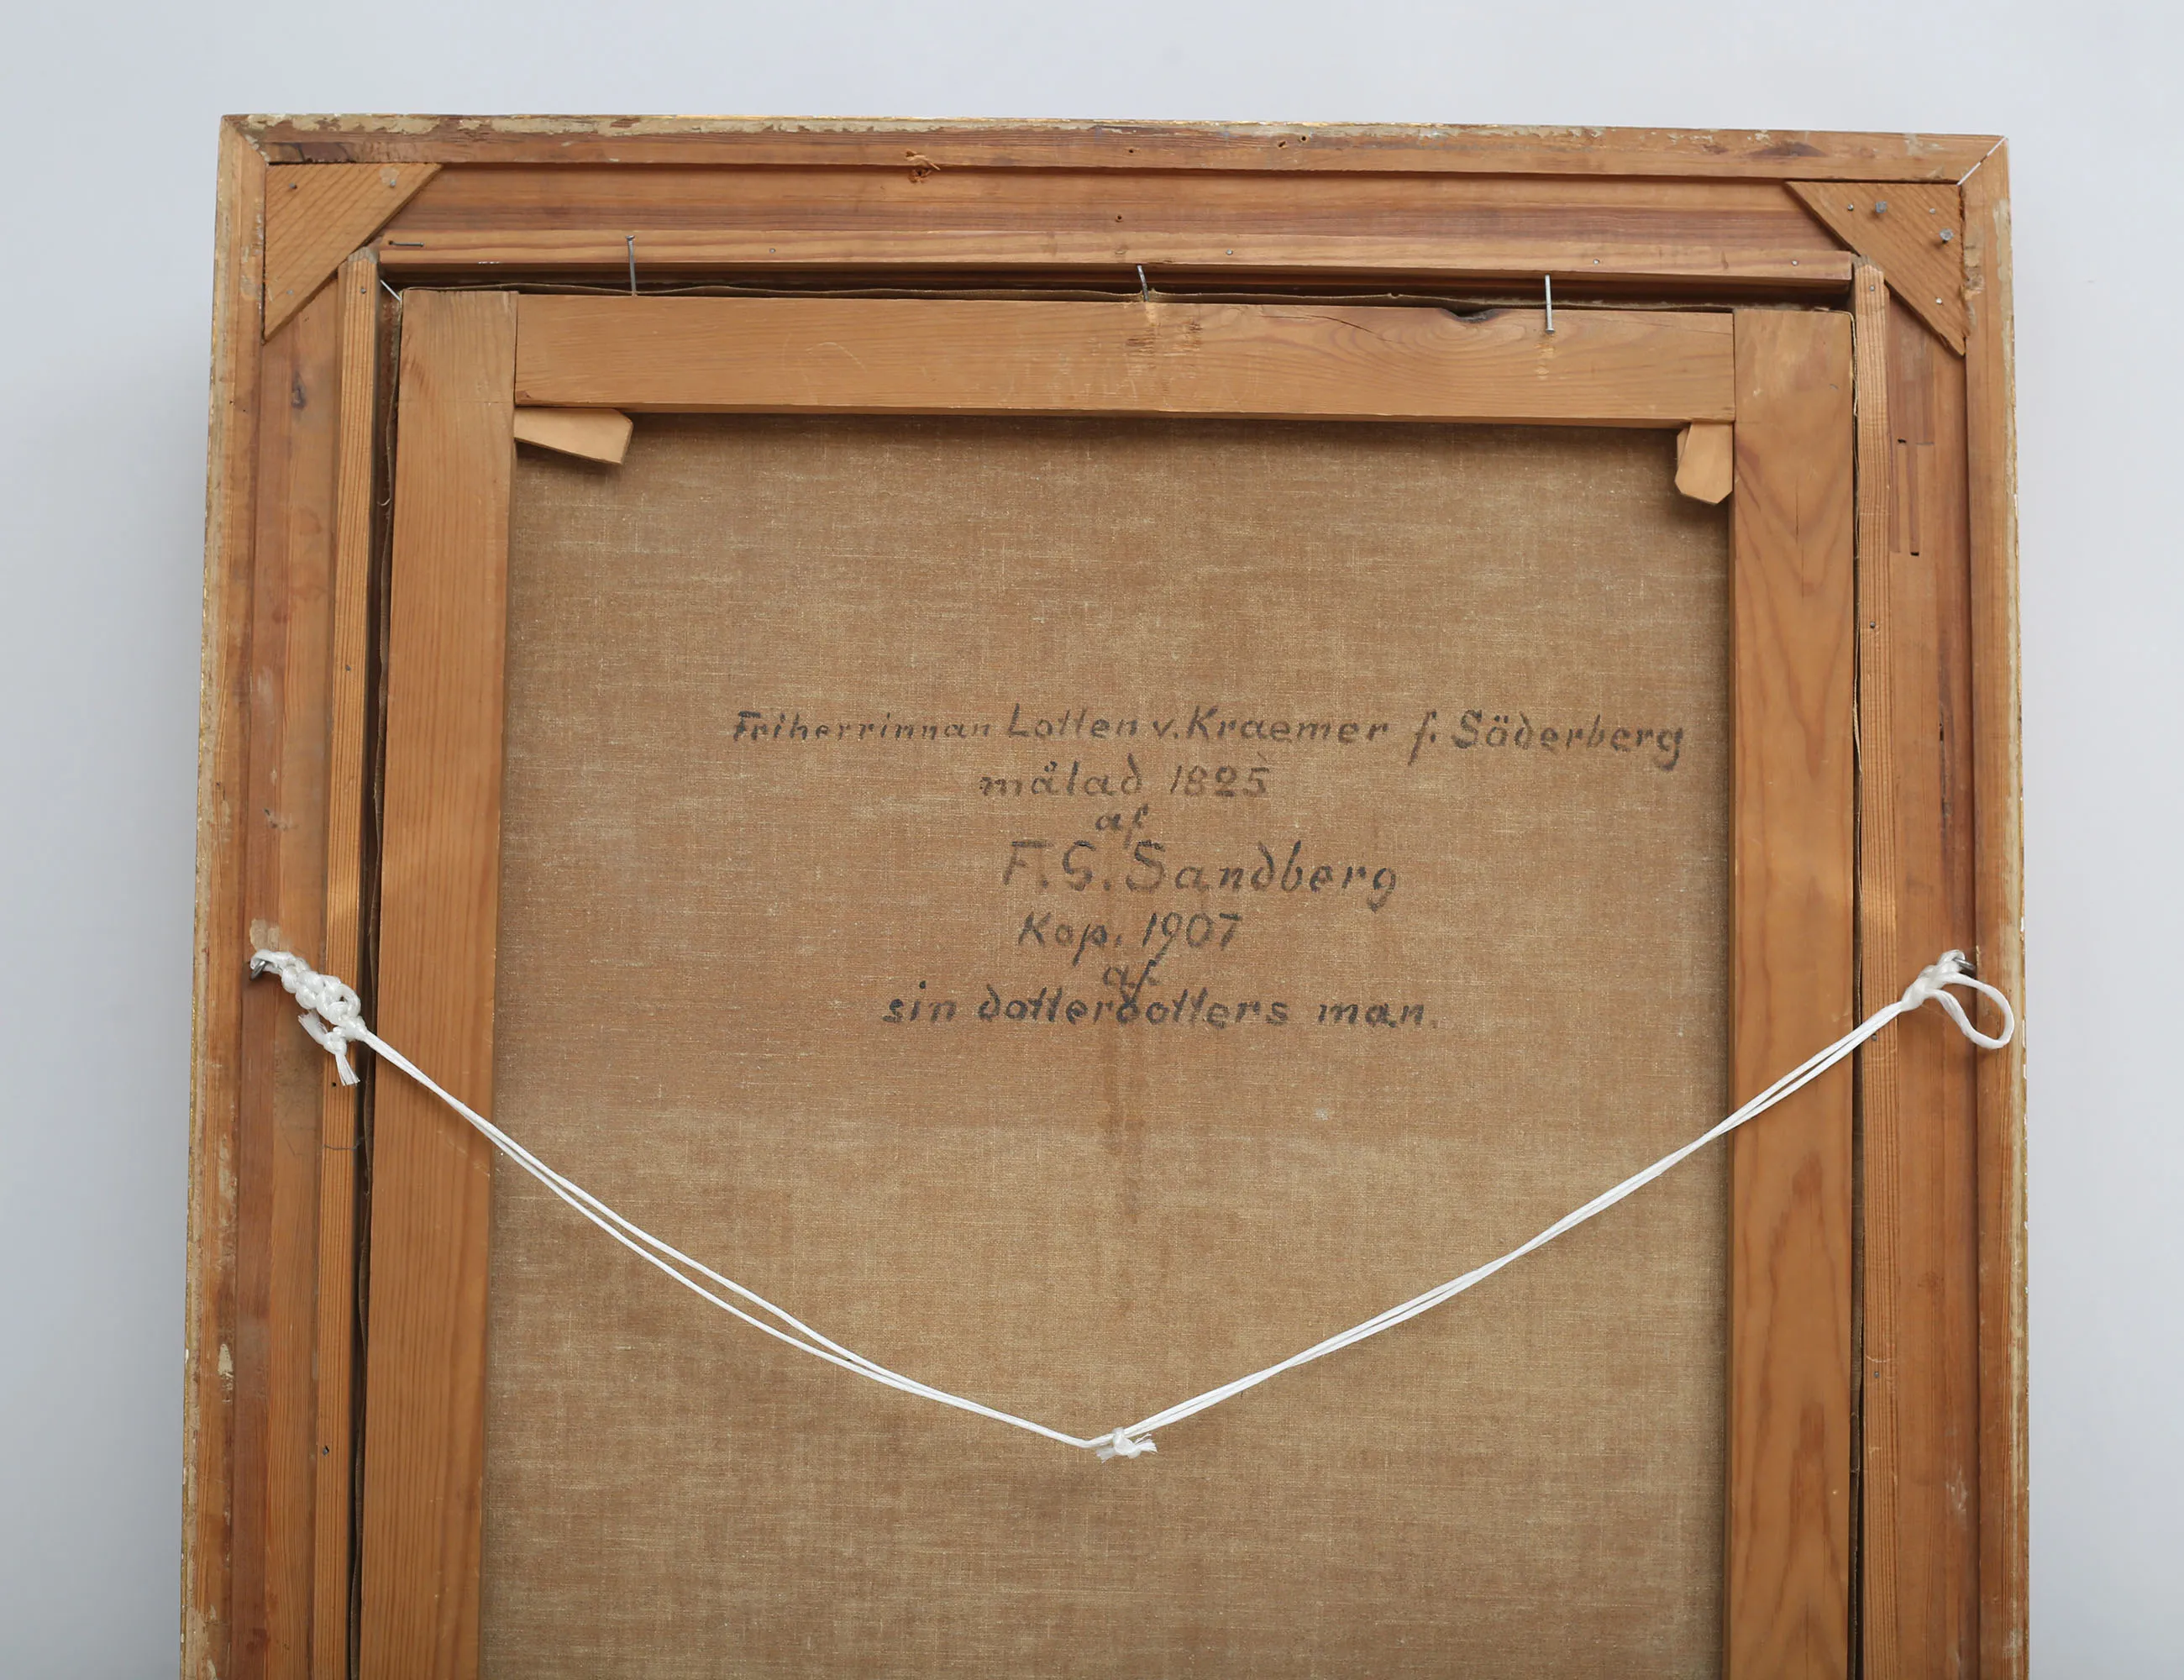 Friherrinnan Lotten v. Kraemer f. Söderberg
målad 1825
af
F. G. Sandberg
Kop. 1907
af
sin dotterdotters man.